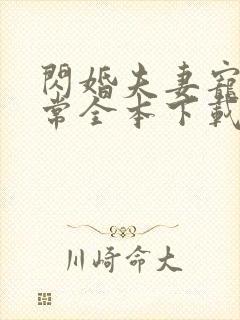 閃婚夫妻寵
常全本下載
川崎命大